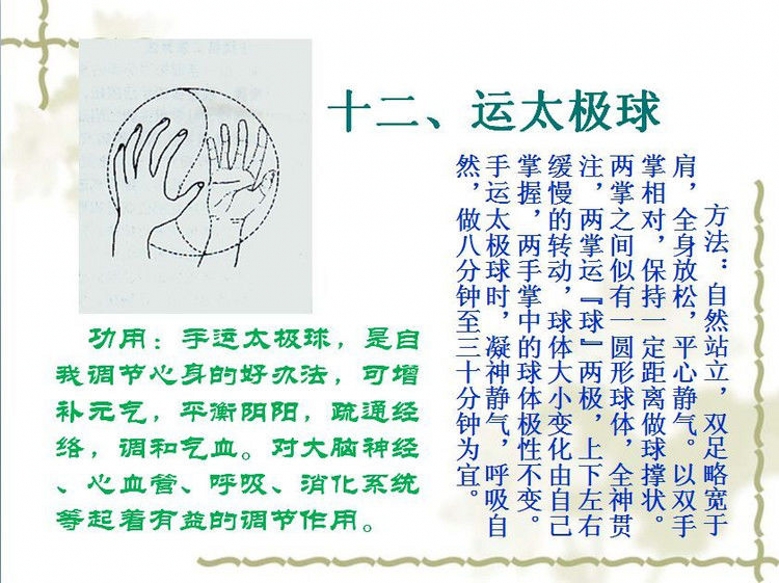 十二、运太极球
方法：自然站立，双足略宽于
肩，全身放松，平心静气。以双手
掌相对，保持一定距离做球撑状。
两掌之间似有一圆形球体，全神贯
注，两掌运『球』两极，上下左右
缓慢的转动，球体大小变化由自己
掌握，两手掌中的球体极性不变。
手运太极球时，凝神静气，呼吸自
然，做八分钟至三十分钟为宜。
功用：手运太极球，是自
我调节心身的好办法，可增
补元气，平衡阴阳，疏通经
络，调和气血。对大脑神经
、心血管、呼吸、消化系统
等起着有益的调节作用。